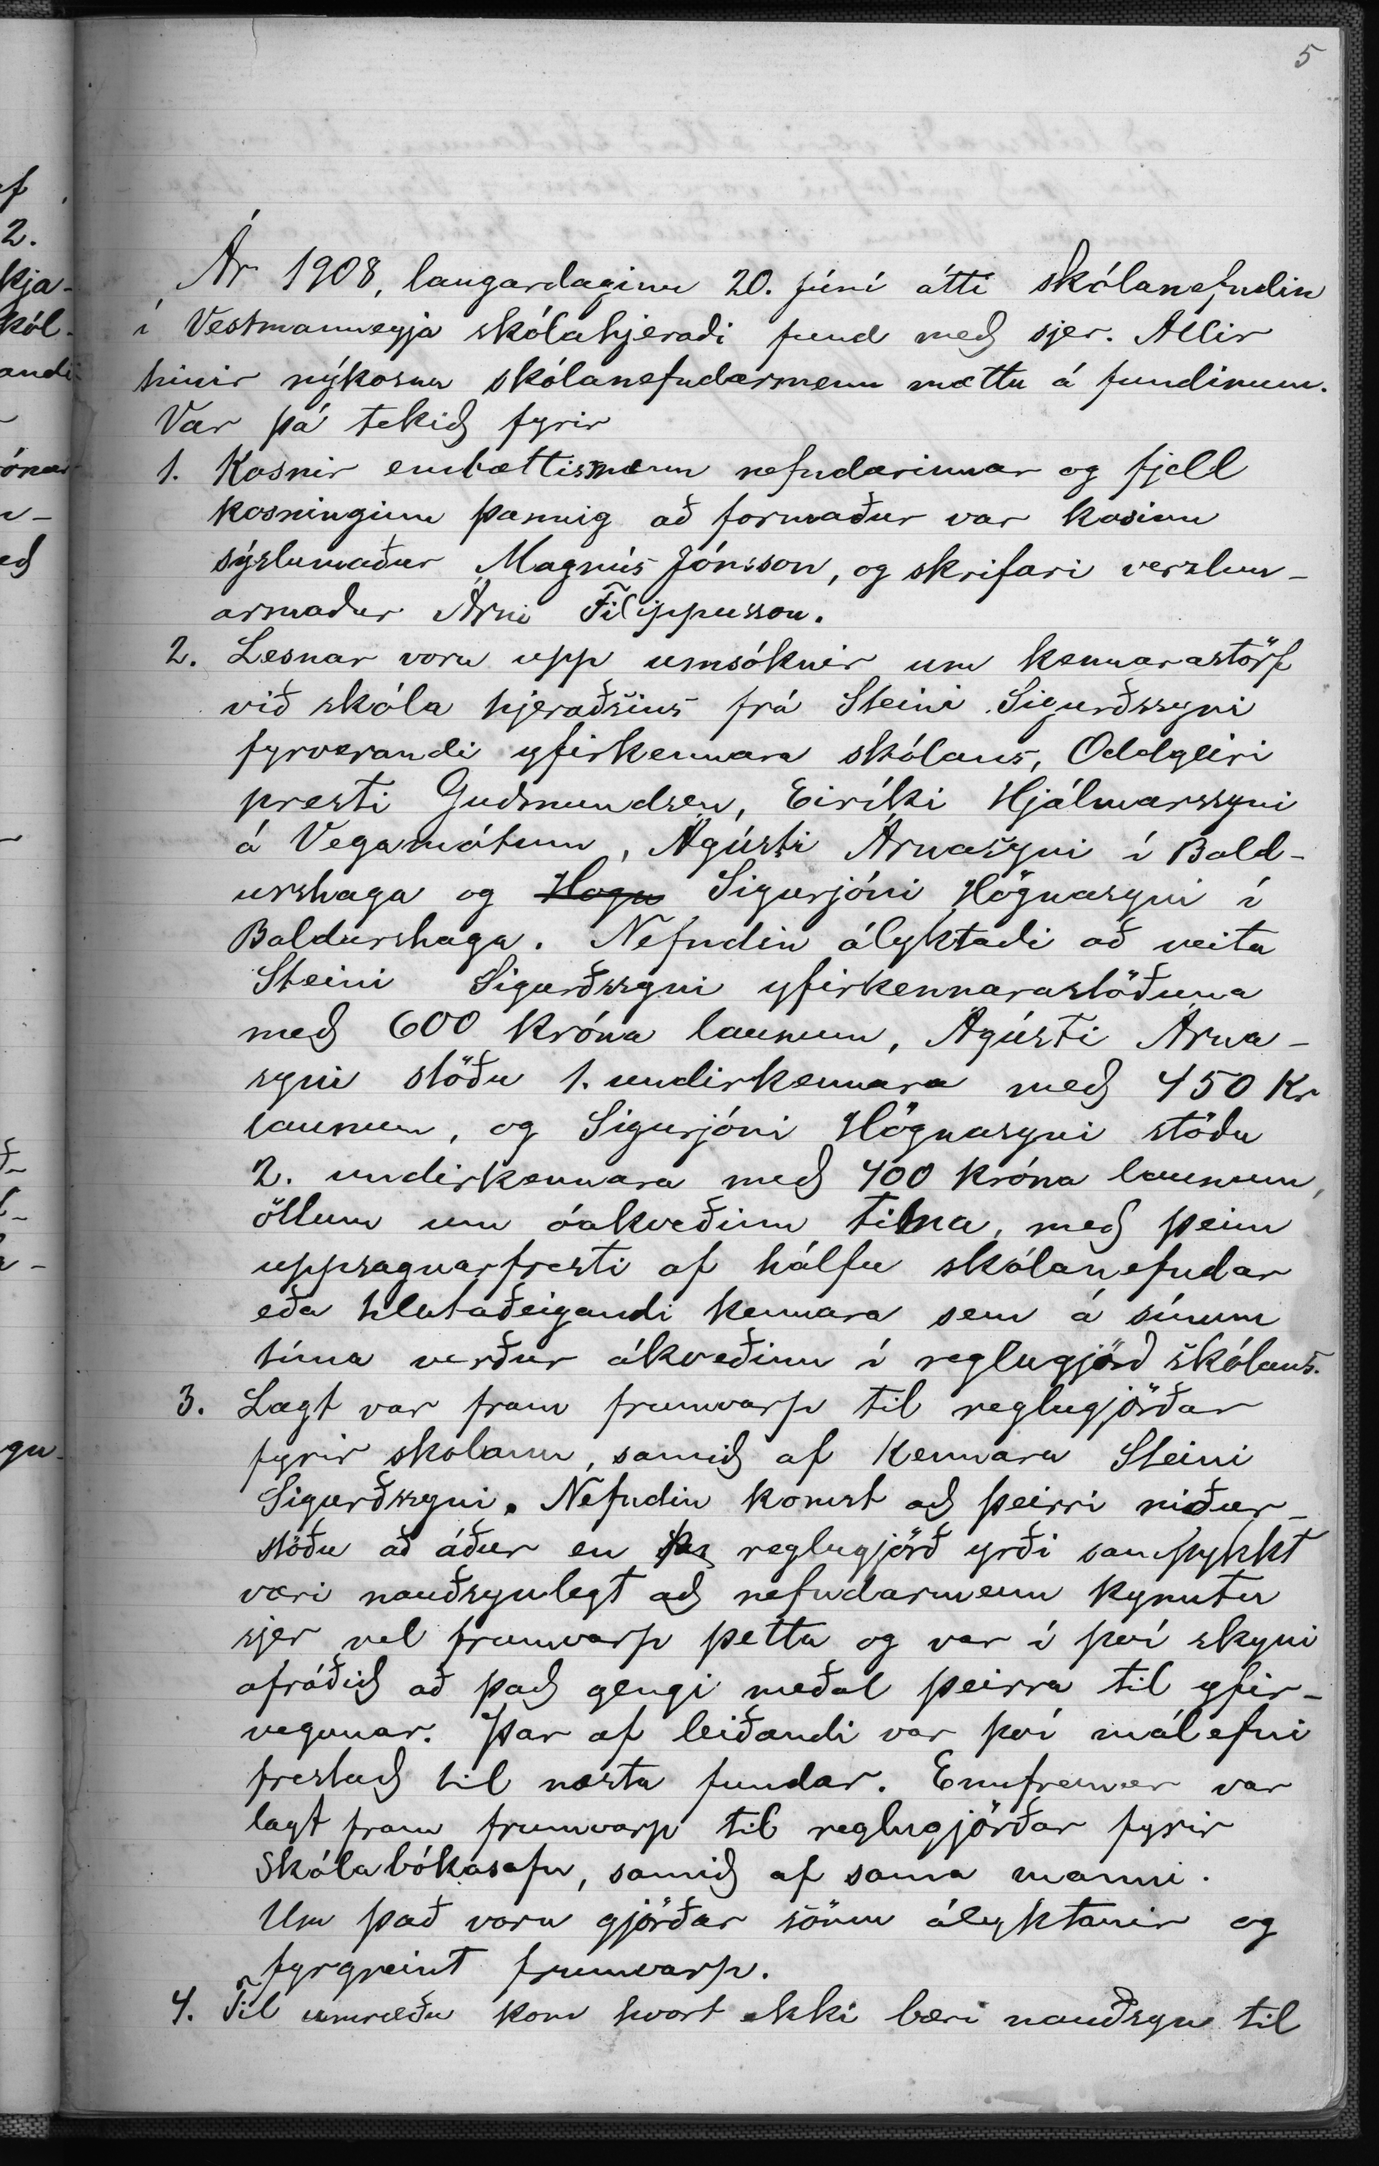 5
Ár 1908, laugardaginn 20. júní átti skólanefndin
í Vestmannegja skólahjeraði fund með sjer. Allir
hinir nýkosnu skólanefndarmenn mættu á fundinum.
Var þá tekið fyrir
1. Kosnir embættismenn nefndarinnar og fjell
kosningin þannig að formaður var kosinn
sýslumaður Magnús Jónsson, og skrifari verzlun-
armaður Árni Filippusson.
2. Lesnar voru upp umsóknir um kennarastörf
við skóla hjeraðsins frá Steini Sigurðssyni
fyrverandi yfirkennara skólans, Oddgeiri
presti Guðmundsen, Eiríki Hjálmarssyni
á Vegamótum, Ágústi Árnasyni í Bald-
urshaga og Sigurjóni Högnasyni í
Baldurshaga. Nefndin ályktaði að veita
Steini Sigurðssyni yfirkennarastöðuna
með 600 króna launum, Ágústi Árna-
syni stöðu 1. undirkennara með 450 Kr
launum, og Sigurjóni Högnasyni stöðu
2. undirkennara með 400 króna launum,
öllum um óakveðinn tíma, með þeim
uppsagnarfresti af hálfu skólanefndar
eða hlutaðeigandi kennara sem á sínum
tíma verður ákveðinn í reglugjörð skólans.
3. Lagt var fram frumvarp til reglugjörðar
fyrir skolann, samið af kennara Steini
Sigurðssyni. Nefndin komst að þeirri niður-
stöðu að áður en reglugjörð yrði samþykkt
væri nauðsynlegt að nefndarmenn kynntu
sjer vel frumvarp þetta og var í því skyni
afráðið að það gengi meðal þeirra til yfir-
vegunar. Þar af leiðandi var því málefni
frestað til næsta fundar. Ennfremur var
lagt fram frumvarp til reglugjörðar fyrir
Skólabókasafn, samið af sama manni.
Um það voru gjörðar sömu ályktanir og
fyrgreint frumvarp.
4. Til umræðu kom hvort ekki bæri nauðsyn til